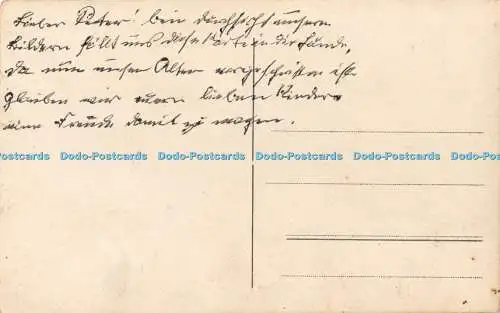 Lieber Peter! bein durchsicht unserer
Bildern fällt uns diese Karte in die Hände,
da nun unser Alter vorgeschritten ist
glauben wir euern lieben Kindern
eine Freude damit zu machen.
Dodo-Postcards Dodo-Postcards Dodo-Postcards Dodo-Postcards Dodo-Postcards Dodo-Postcards